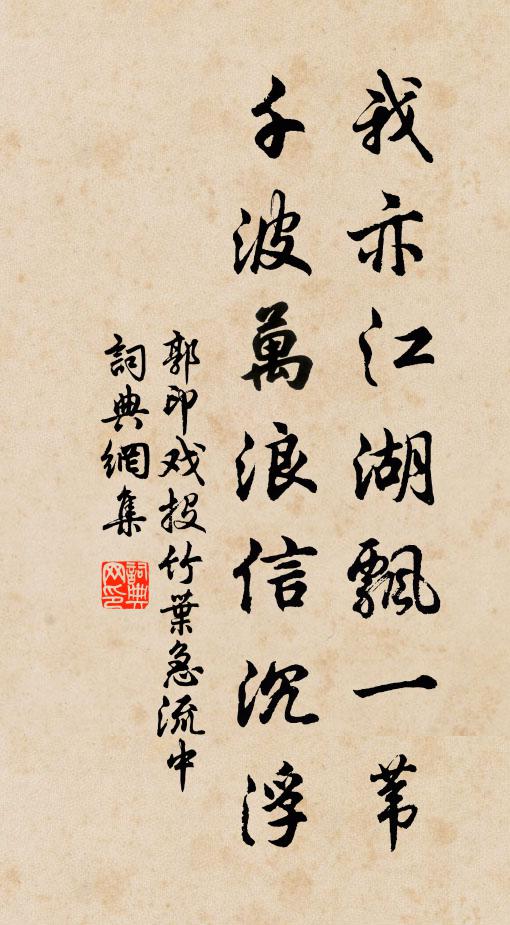 我亦江湖飄一苇
千波萬浪信沉浮
郭印戏投竹葉急流中
詞典網集
詞典网印